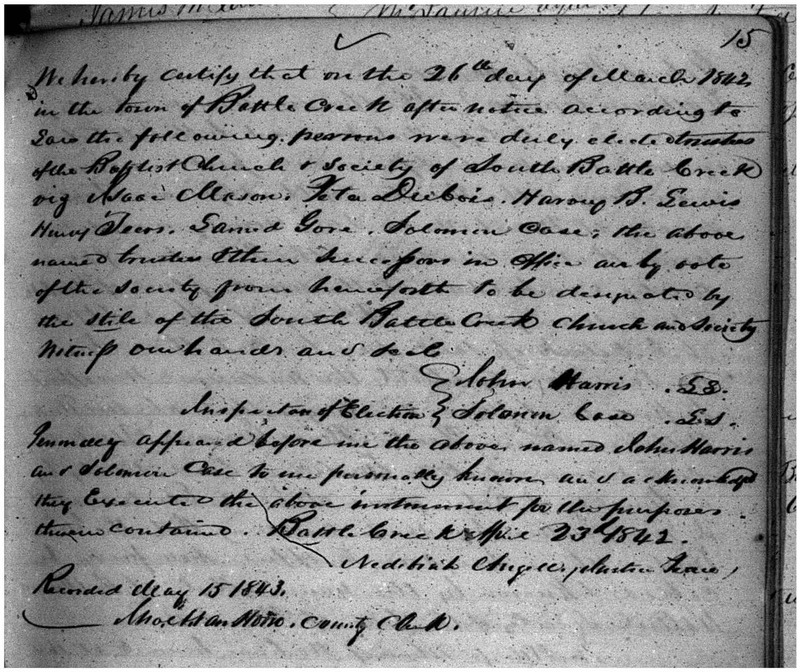 James
15
We hereby certify that on the 26th day of March 1842
in the town of Battle Creek after notice according to
Law the following persons were duly elected trustees
of the Baptist Church & Society of South Battle Creek
viz Isaac Mason. Peter DuBois. Harvey B. Lewis
Henry Gore. Solomon Case, the above
named trustees & their Successors in office are by vote
of the society from henceforth to be designated by
the stile of the South Battle Creek Church and Society
Witness our hands and seals
John Harris . LS.
Inspectors of Election Solomon Case . LS.
appeared before me the above named John Harris
and Solomon Case to me personally known and acknowledged
they Executed the above instrument for the purposes
therein contained. Battle Creek April 23d 1842.
Angell Justice Peace
Recorded May 15 1843.
County Clerk.